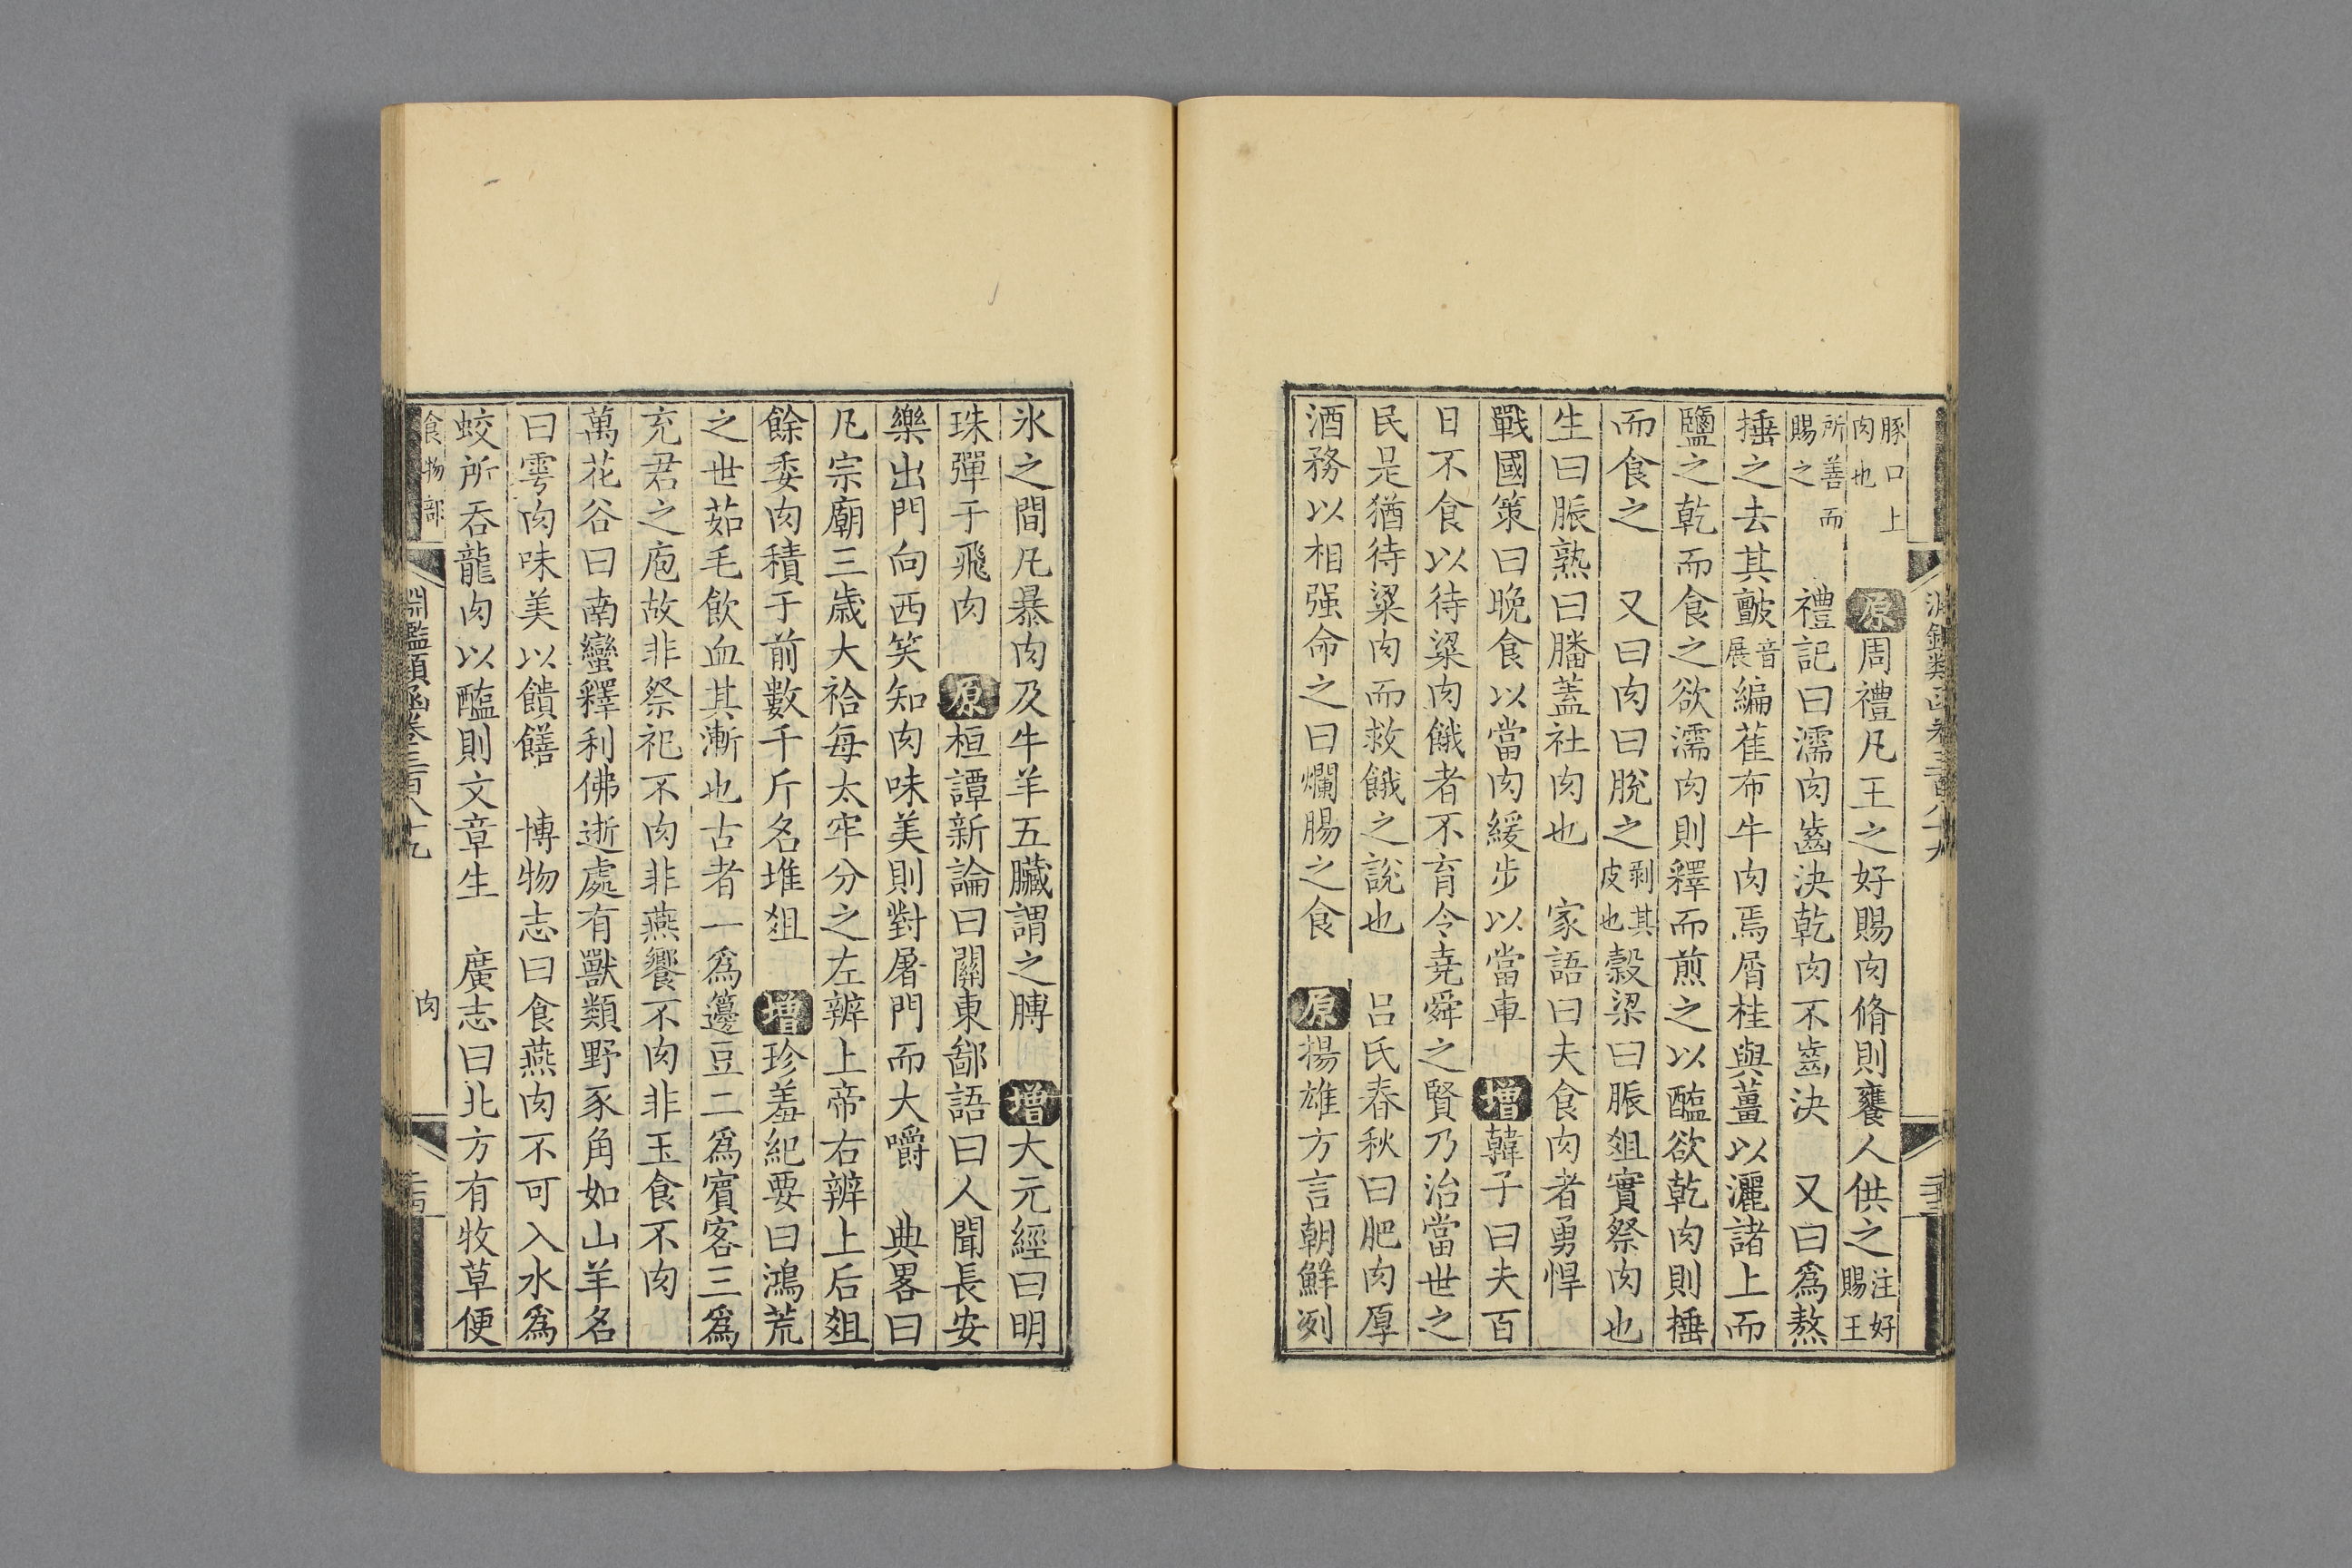 豚口上肉也　原周禮凡王之好賜肉脩則饔人供之注好賜王
所善而賜之　禮記曰濡肉齒決乾肉不齒決　又曰爲熬
捶之去其皽音展編萑布牛肉焉屑桂與薑以灑諸上而
鹽之乾而食之欲濡肉則釋而煎之以醢欲乾肉則捶
而食之　又曰肉曰脫之剥其皮也穀梁曰脤俎實祭肉也
生曰脤熟曰膰蓋社肉也　家語曰夫食肉者勇悍
戰國策曰晚食以當肉緩步以當車　增韓子曰夫百
日不食以待粱肉餓者不育今堯舜之賢乃治當世之
民是猶待粱肉而救餓之說也　呂氏春秋曰肥肉厚
酒務以相强命之曰爛腸之食　原揚雄方言朝鮮冽
氷之間凡暴肉及牛羊五臟謂之膊　增大元經曰明
珠彈于飛肉　原桓譚新論曰關東鄙語曰人聞長安
樂出門向西笑知肉味美則對屠門而大嚼　典畧曰
凡宗廟三歲大祫每太牢分之左辨上帝右辨上后俎
餘委肉積于前數千斤名堆俎　增珍羞紀要曰鴻荒
之世茹毛飲血其漸也古者一爲籩豆二爲賓客三爲
充君之庖故非祭祀不肉非燕饗不肉非玉食不肉
萬花谷曰南蠻釋利佛逝處有獸類野豕角如山羊名
曰雩肉味美以饋饍　博物志曰食燕肉不可入水爲
蛟所吞龍肉以醢則文章生　廣志曰北方有牧草便
食物部　淵鑑類函卷三百八十九　肉